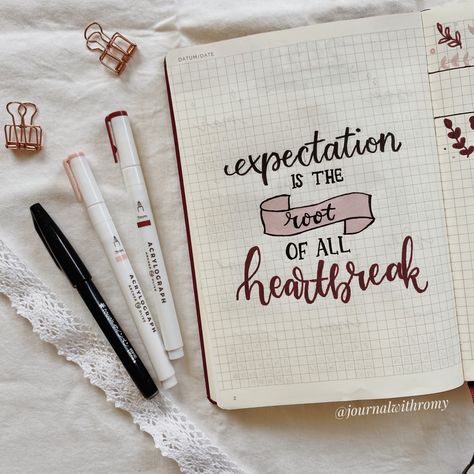 DATUM/DATE
expectation
IS THE
root
OF ALL
heartbreak
2
@journalwithromy
ACRYLOGRAPH
ACRYLOGRAPH